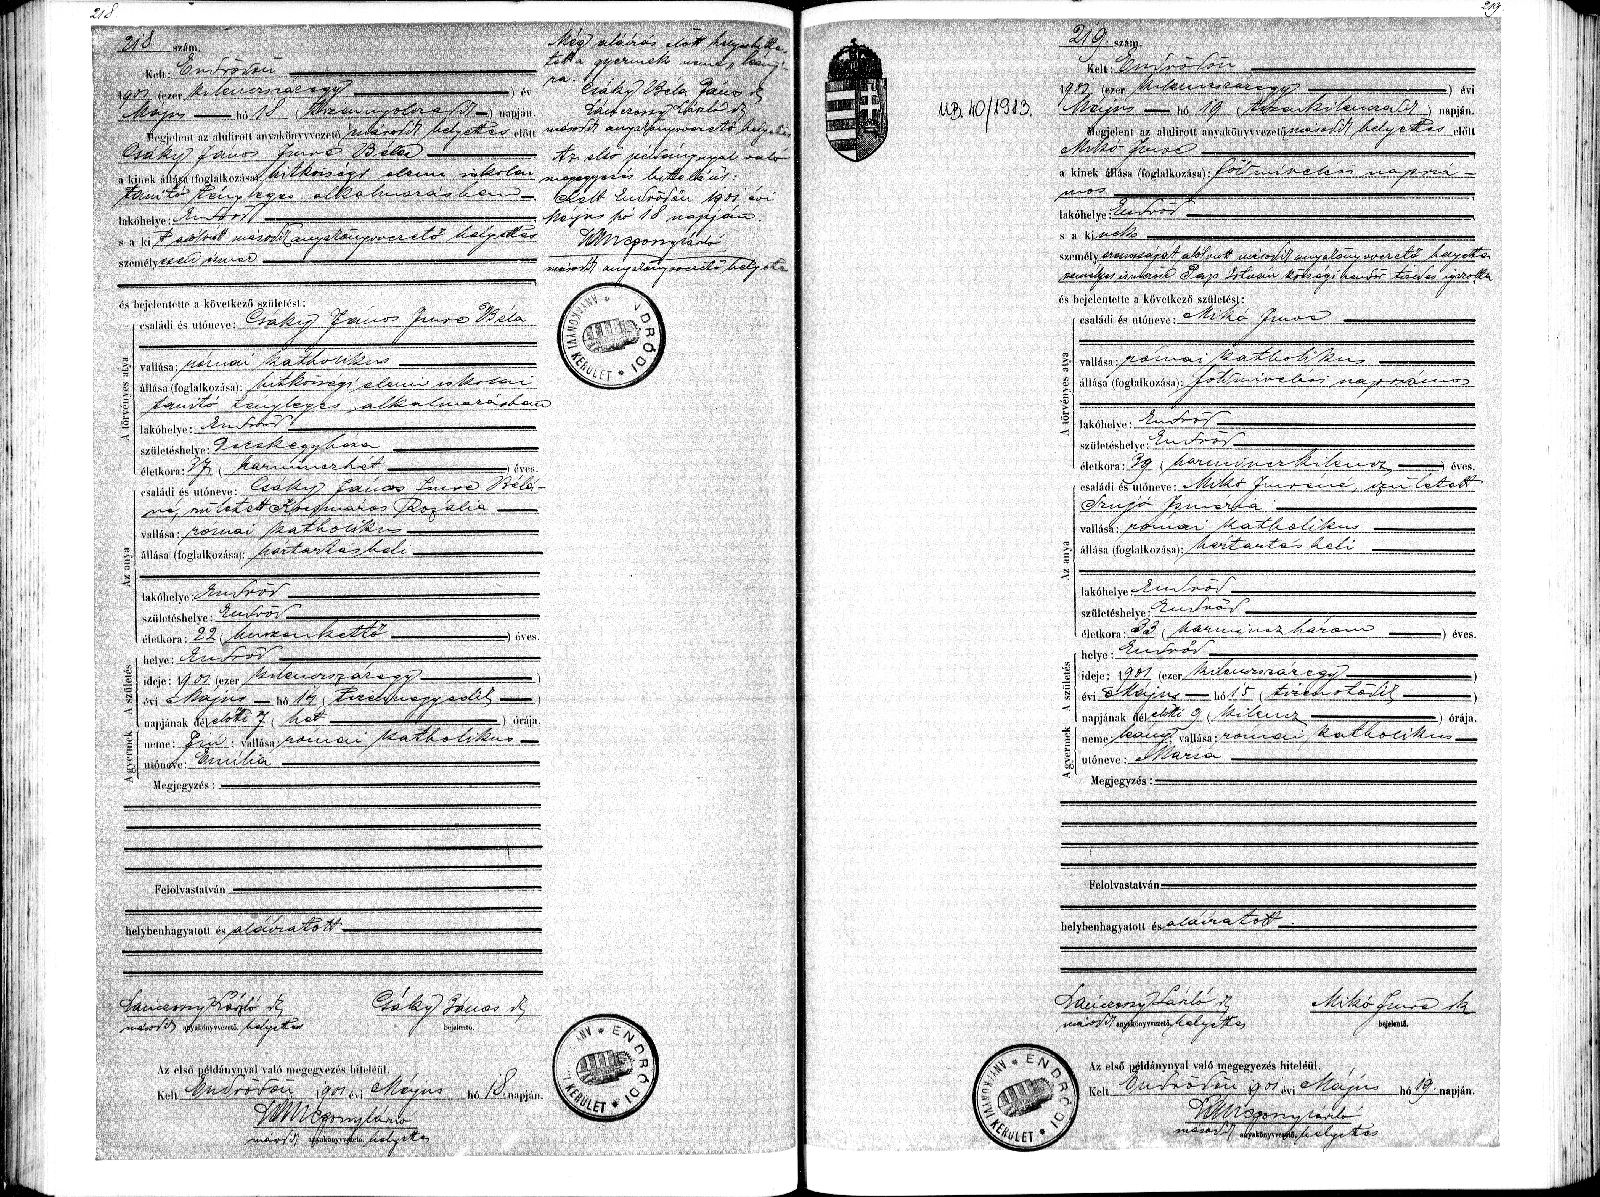 218
218 szám.
Kelt: Endrődön
1901 (ezer kilenczszázegy) évi
Május hó 18 (tizennyolczadik) napján.
Megjelent az alulirott anyakönyvvezető másodk helyettes előtt
Csáky János Imre Béla
a kinek állása (foglalkozása): hitközségi elemi iskolai
tanitó tényleges alkalmazásban
lakóhelye: Endrőd
s a ki t alólirott másodk anyakönyvvezető helyettes
személyesen ismer
és bejelentette a következő születést:
A törvényes atya
családi és utóneve: Csáky János Imre Béla
vallása: római katholikus
állása (foglalkozása): hitközségi elemi iskolai
tanitó tényleges alkalmazásban
lakóhelye: Endrőd
születéshelye:
életkora: 37 (harminczhét) éves.
Az anya
családi és utóneve: Csáky János Imre Bélá-
né, született Rozália
vallása: római katholikus
állása (foglalkozása): háztartásbeli
lakóhelye: Endrőd
születéshelye: Endrőd
életkora: 22 (huszonkettő) éves.
A születés
helye: Endrőd
ideje: 1901 (ezer kilenczszázegy)
évi Május hó 14 (tizennegyedik)
napjának délelőtti 7 (hét) órája.
A gyermek
neme: vallása: római katholikus
utóneve: Emilia
Megjegyzés:
Felolvastatván
helybenhagyatott és aláiratott
másodk anyakönyvvezető. helyettes
Csáky János
bejelentő.
Az első példánynyal való megegyezés hiteléül.
Kelt Endrődön 1901 évi Május hó 18. napján.
másodk anyakönyvvezető, helyettes
Még aláirás előtt helyesbitte-
tett a gyermek neme leány-
ra.
Csáky Béla János
másodk anyakönyvvezető helyettes
Az első példánynyal való
megegyezés hiteléül:
Kelt Endrődön 1901. évi
Május hó 18 napján.
másodk anyakönyvvezető helyettes
ENDRŐDI ANYAKÖNYVI KERÜLET
ENDRŐDI ANYAKÖNYVI KERÜLET
219
219 szám.
U.B. 40/1913.
Kelt: Endrődön
1901 (ezer kilenczszázegy) évi
Május hó 19 (tizenkilenczedik) napján.
Megjelent az alulirott anyakönyvvezető másodk helyettes előtt
Mikó Imre
a kinek állása (foglalkozása): földmivelési napszá-
mos
lakóhelye: Endrőd
s a ki nek
személyazonosságát alólirott másodk anyakönyvvezető helyettes
személyes ismerőse Pap István községi kézbesitő tanú igazolta
és bejelentette a következő születést:
A törvényes atya
családi és utóneve: Mikó Imre
vallása: római katholikus
állása (foglalkozása): földmivelési napszámos
lakóhelye: Endrőd
születéshelye: Endrőd
életkora: 39 (harminczkilencz) éves.
Az anya
családi és utóneve: Mikó Imréné, született
Szujó
vallása: római katholikus
állása (foglalkozása): háztartásbeli
lakóhelye: Endrőd
születéshelye: Endrőd
életkora: 33 (harminczhárom) éves.
A születés
helye: Endrőd
ideje: 1901 (ezer kilenczszázegy)
évi Május hó 15 (tizenötödik)
napjának délelőtti 9 (kilencz) órája.
A gyermek
neme: leány vallása: római katholikus
utóneve: Mária
Megjegyzés:
Felolvastatván
helybenhagyatott és aláiratott.
másodk anyakönyvvezető, helyettes
Mikó Imre
bejelentő.
Az első példánynyal való megegyezés hiteléül.
Kelt Endrődön 1901 évi Május hó 19. napján.
másodk anyakönyvvezető, helyettes
ENDRŐDI ANYAKÖNYVI KERÜLET